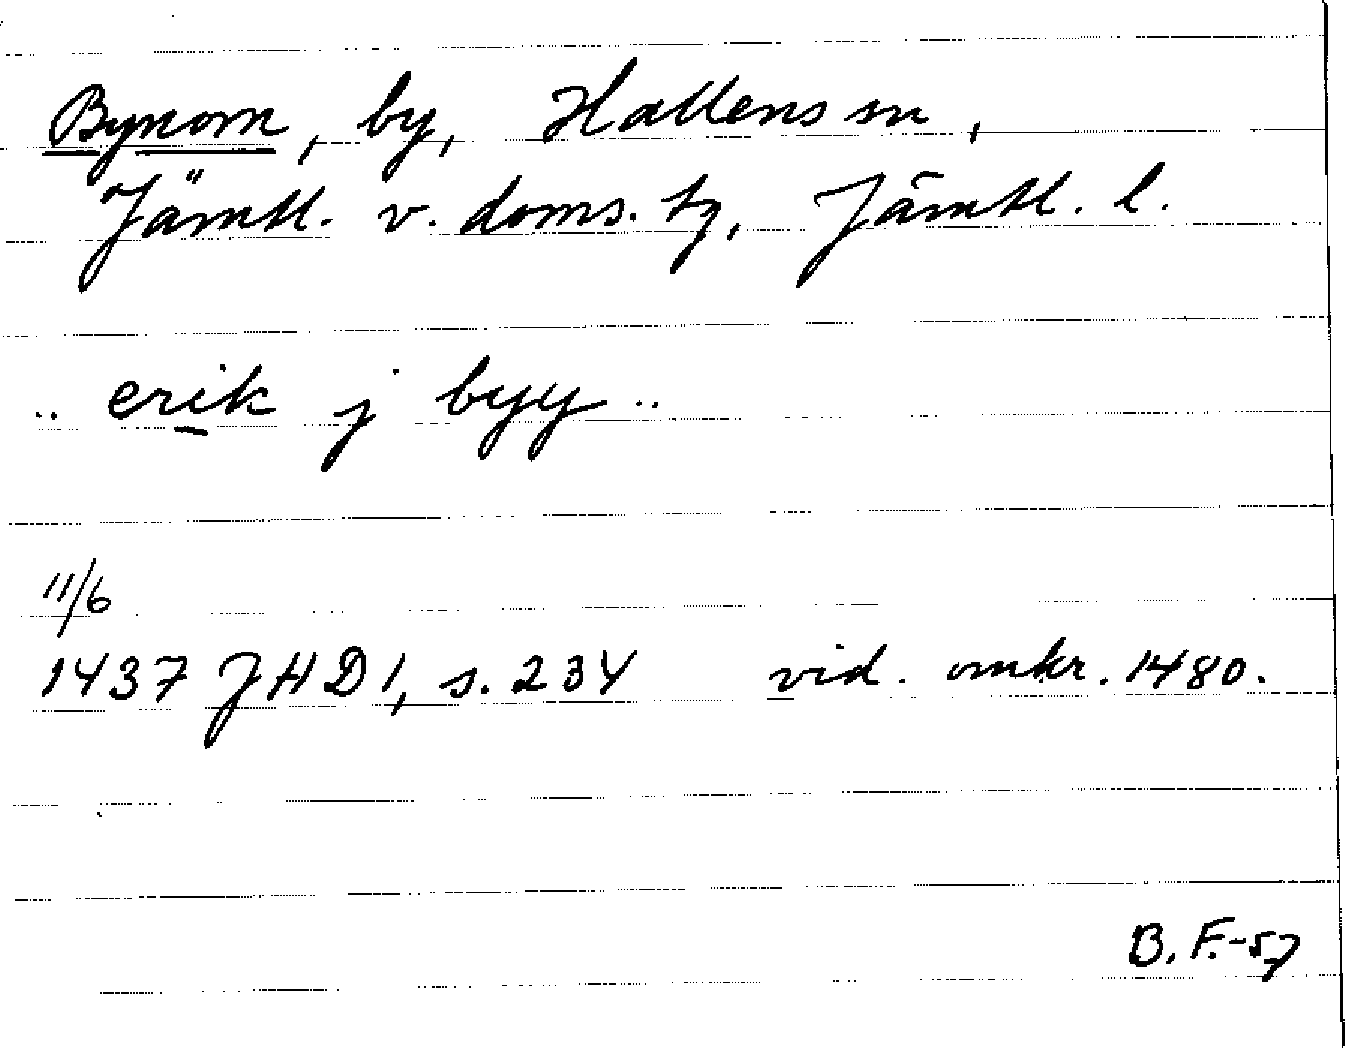 Bynom, by, Hallens sn,
Jämtl. v. doms. tg, Jämtl. l.
.. erik j byy ..
11/6
1437 JHD 1, s. 234 vid. omkr. 1480.
B. F.-57